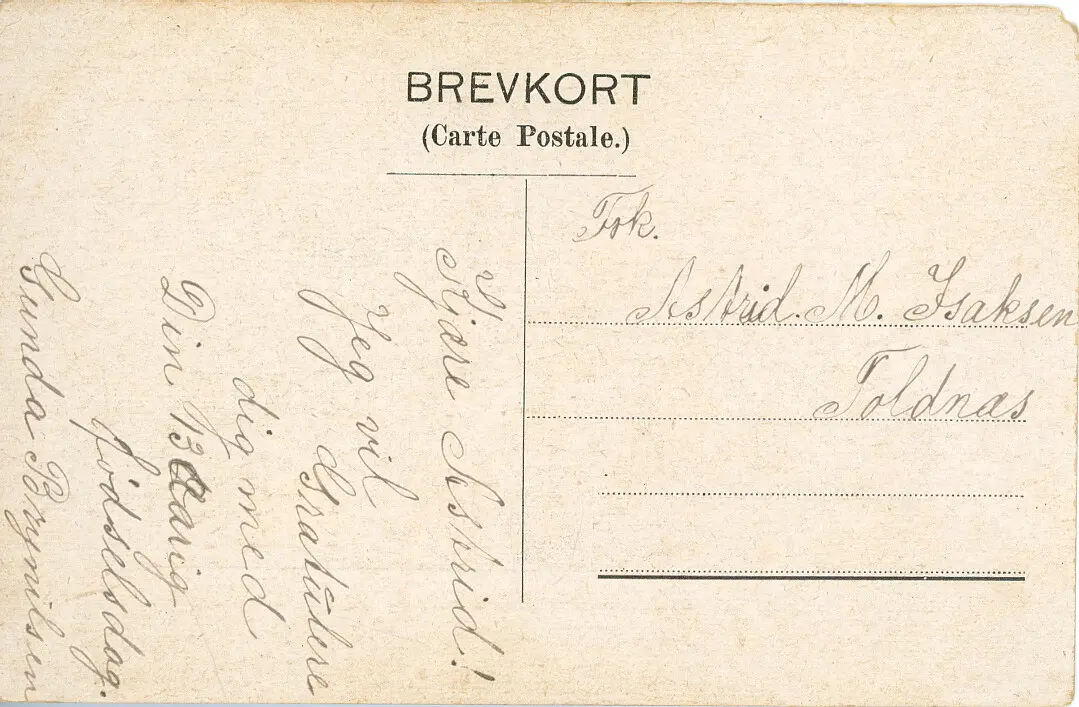 BREVKORT
(Carte Postale.)
Frk.
Astrid. M. Isaksen
Toldnæs
Kjære Astrid!
Jeg vil Gratulere
dig med
Din 13 Aarig
fødselsdag.
Gunda Brynilsen